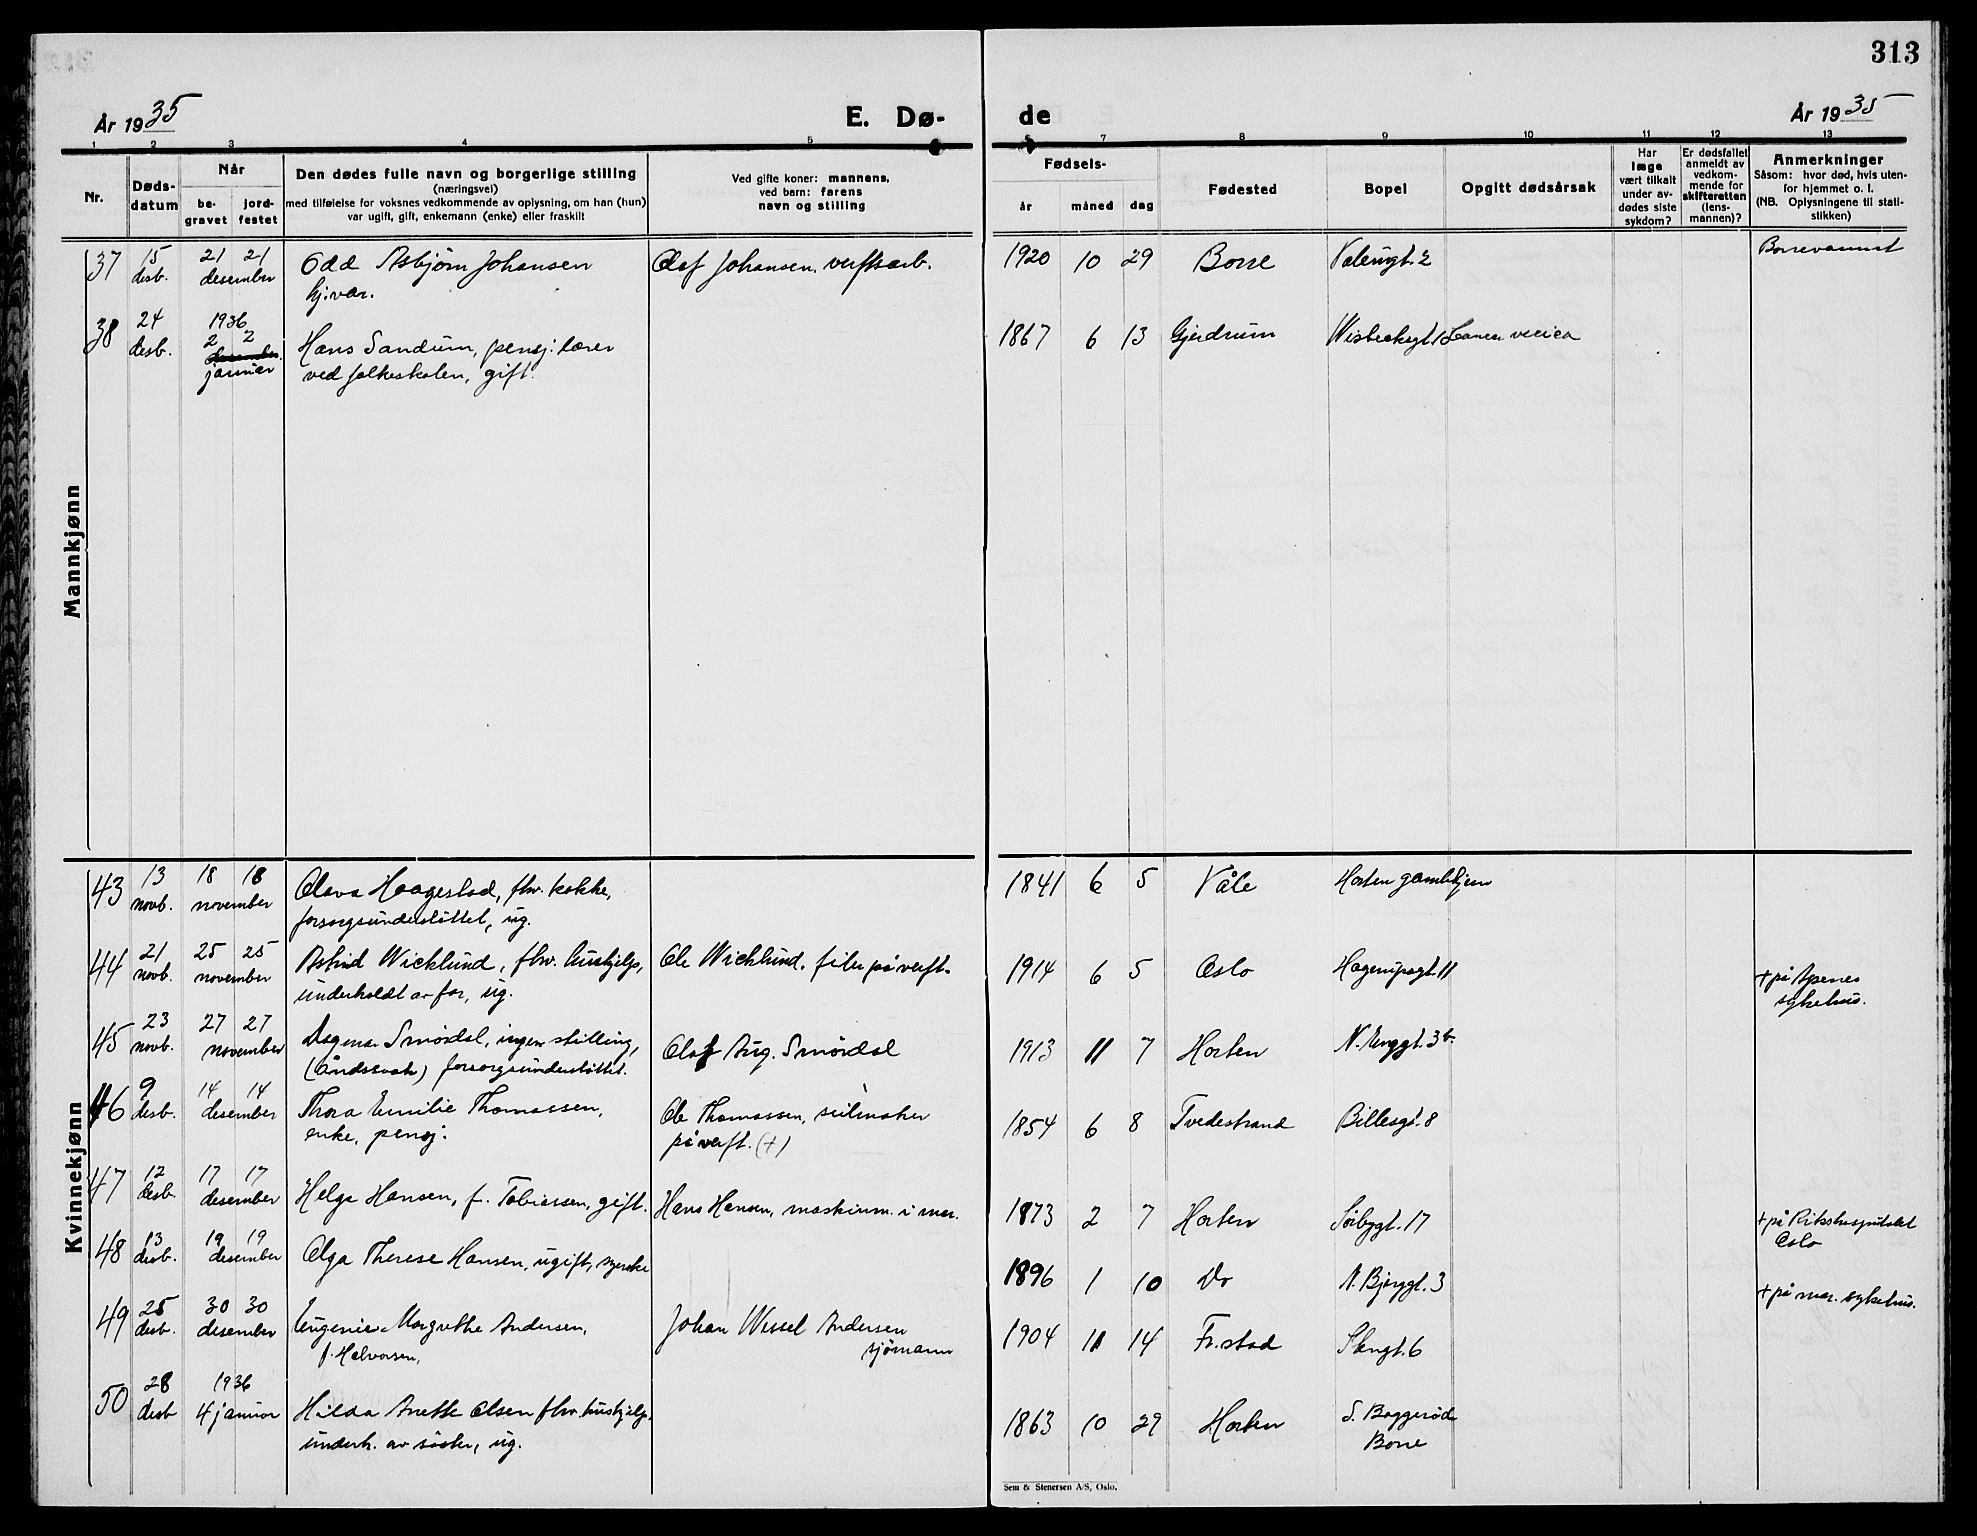 313
År 1935
E. Dø-
de
År 1935
1 2 3 4 5 6 7 8 9 10 11 12 13
Nr.
Døds-
datum
Når
be-
gravet
jord-
festet
Den dødes fulle navn og borgerlige stilling
(næringsvei)
med tilføielse for voksnes vedkommende av oplysning, om han (hun)
var ugift, gift, enkemann (enke) eller fraskilt
Ved gifte koner: mannens,
ved barn: farens
navn og stilling
Fødsels-
år måned dag
Fødested
Bopel
Opgitt dødsårsak
Har
læge
vært tilkalt
under av-
dødes siste
sykdom?
Er dødsfallet
anmeldt av
vedkom-
mende for
skifteretten
(lens-
mannen)?
Anmerkninger
Såsom: hvor død, hvis uten-
for hjemmet o. l.
(NB. Oplysningene til stati-
stikken)
Mannkjønn
37 15 21 21 Odd Asbjørn Johansen Olaf Johansen, verftsarb. 1920 10 29 Borre Valengt. 2 Borrevannet
desb. desember hj.vær.
38 24 1936
desb. 2 2 Hans Sandum, pensj. lærer 1867 6 13 Gjerdrum
januar ved folkeskolen, gift.
Kvinnekjønn
43 13 18 18 Olava Haagestad, fhv. kokke, 1841 6 5 Våle Horten gamlehjem
novb. november forsorgsunderstøttet, ug.
44 21 25 25 Astrid Wicklund, fhv. hushjelp, Ole Wicklund, filer på verft. 1914 6 5 Oslo Hagerupsgt. 11 + på Apenes
novb. november underholdt av far, ug. sykehus.
45 23 27 27 Dagmar Smørdal, ingen stilling, Olaf Aug. Smørdal 1913 11 7 Horten N. Enggt. 3b.
novb. november (åndssvak) forsorgsunderstøttet.
46 9 14 14 Thora Emilie Thomassen, Ole Thomassen, seilmaker 1854 6 8 Tvedestrand Billesgt. 8
desb. desember enke, pensj. på verft. (+)
47 12 17 17 Helga Hansen, f. Tobiassen, gift. Hans Hansen, maskinm. i mar. 1873 2 7 Horten Sørbygt. 17 + på Rikshospitalet
desb. desember Oslo
48 13 19 19 Olga Therese Hansen, ugift, syerske 1896 1 10 Do N. Bjerggt. 3 + på mar. sykehus.
desb. desember
49 25 30 30 Eugenie Margrethe Andersen, Johan Wessel Andersen 1904 11 14 Fr.stad Stengt. 6
desb. desember f. Halvorsen, sjømann
50 28 1936
desb 4 januar Hilda Anette Olsen fhv. hushjelp, 1863 10 29 Horten S. Baggerød
underh. av søster, ug. Borre
Sem & Stenersen A/S, Oslo.